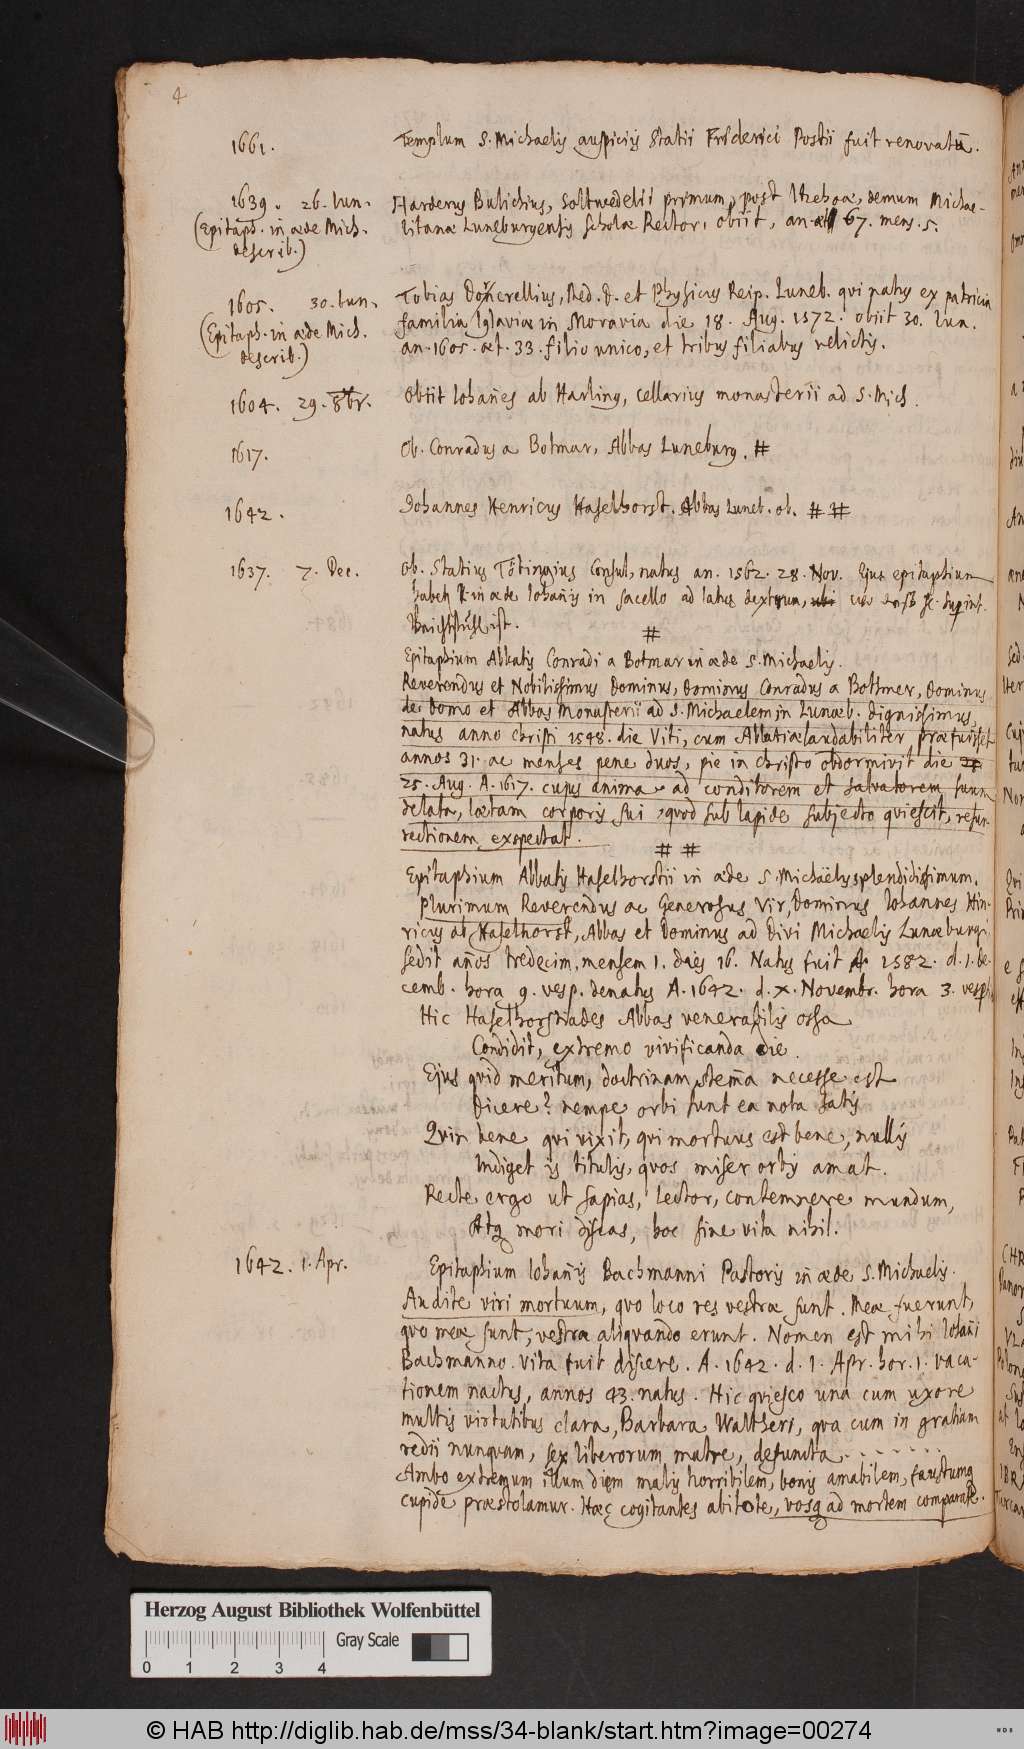 4
1661. Templum S. Michaelis auspiciis Statii Friderici Postii fuit renovatū.
1639. 26. Iun. Harderus Bulichius, Soltwedelii primum, post Itzehoæ, demum Michae-
(Epitaph. in æde Mich. litanæ Luneburgensis scholæ Rector, obiit, an. æt 67. mens. 5.
describ.)
1605. 30. Iun. Tobias Dorncrellius, Med. D. et Physicus Reip. Luneb. qui natus ex patricia
(Epitaph. in æde Mich. familia Iglaviæ in Moravia die 18. Aug. 1572. obiit 30. Iun.
describ.) an. 1605. æt. 33. filio unico, et tribus filiabus relictis.
1604. 29. 8br. Obiit Johan̄es ab Harling, Cellarius monasterii ad S. Mich.
1617. Ob. Conradus a Botmar, Abbas Luneburg. #
1642. Johannes Henricus Haselhorst. Abbas Luneb. ob. # #
1637. 7. Dec. Ob. Statius Tötingius Consul, natus an. 1562. 28. Nov. Ejus epitaphium
in æde Iohan̄is in sacello ad latus dextrum, ubi
ist.
#
Epitaphium Abbatis Conradi a Botmar in æde S. Michaelis.
Reverendus et Nobilissimus Dominus, Dominus Conradus a Bothmer, Dominus
de Domo et Abbas Monasterii ad S. Michaelem in Lunæb. dignissimus,
natus anno Christi 1548. die Viti, cum Abbatiæ laudabiliter præfuisset
annos 31. ac menses pene duos, pie in Christo obdormivit die
25. Aug. A. 1617. cujus anima ad conditorem et salvatorem suum
delata, lætam corporis sui, quod sub lapide subjecto quiescit, resur-
rectionem exspectat.
# #
Epitaphium Abbatis Haselhorstii in æde S. Michaelis splendidissimum.
Plurimum Reverendus ac Generosus Vir, Dominus Iohannes Hin-
ricus ab Haselhorst, Abbas et Dominus ad Divi Michaelis Lunæburgi
sedit an̄os tredecim, mensem 1. dies 16. Natus fuit A. 1582. d. 1. De-
cemb. hora 9. vesp. denatus A. 1642. d. X. Novembr. hora 3. vesp.
Hic Haselhorstiades Abbas venerabilis ossa
Condidit, extremo vivificanda die.
Ejus quid meritum, doctrinam, stem̄a necesse est
Dicere? nempe orbi sunt ea nota satis
Quin bene qui vixit, qui mortuus est bene, nullis
Indiget is titulis, quos miser orbis amat.
Recte ergo ut sapias, lector, contemnere mundum,
Atq mori discas, hoc sine vita nihil.
1642. 1. Apr. Epitaphium Iohan̄is Bachmanni Pastoris in æde S. Michaelis.
Audite viri mortuum, quo loco res vestræ sunt. Meæ fuerunt,
quo meæ sunt, vestræ aliquando erunt. Nomen est mihi Iohan̄i
Bachmanno. vita fuit discere. A. 1642. d. 1. Apr. hor. 1. vaca-
tionem nactus, annos 43. natus. Hic quiesco una cum uxore
multis virtutibus clara, Barbara Waltheri, qua cum in gratiam
redii nunquam, sex liberorum matre, defuncta . . . . . . .
Ambo extremum illum diem malis horribilem, bonis amabilem, faustumq
cupide præstolamur. Hæc cogitantes abitote, vosq ad mortem comparate.
Herzog August Bibliothek Wolfenbüttel
Gray Scale
0 1 2 3 4
© HAB http://diglib.hab.de/mss/34-blank/start.htm?image=00274